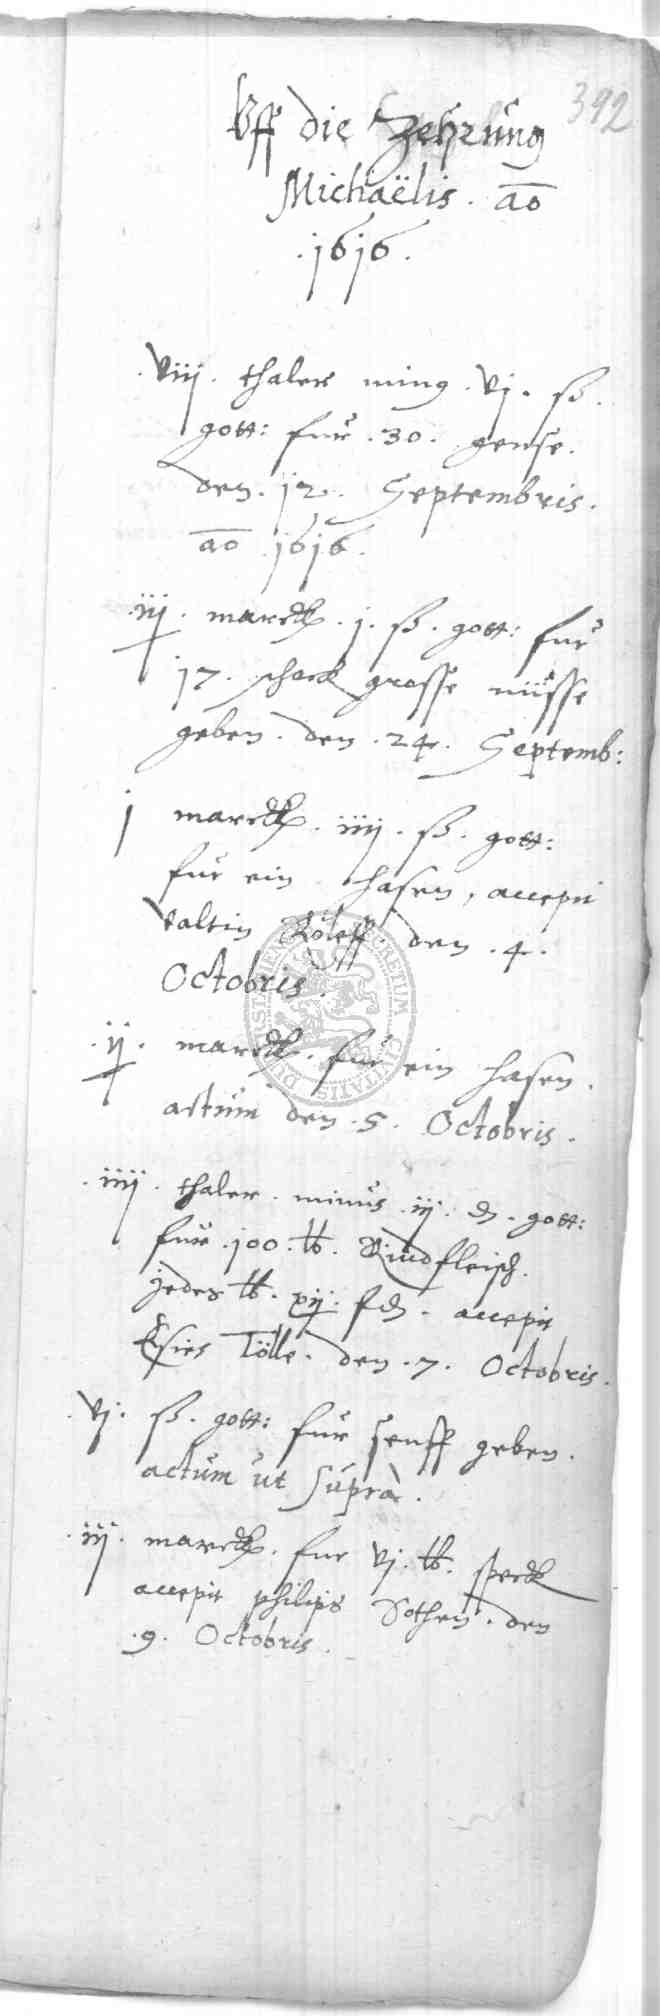 392
Uff die Zehrung
Michaëlis . ao
. 1616 .
. viii . thaler ming . vj . ß .
gott: fur . 30 . gense .
den . 12 . Septembris .
ao 1616 .
. iij . marck . j . ß . gott: fur
17 . schock grosse nüsse
geben . den . 24 . Septemb:
j marck . iiij . ß . gott:
fur ein hasen , accepit
Valtin Röleff . den . 4 .
Octobris .
. ij . marck . fur ein hasen .
actum den . 5 . Octobris .
. iiij . thaler . minus . iij . d . gott:
fur . 100 . lb . Rindfleisch .
jedes lb . xij : d . accepit
Tölle . den . 7 . Octobris .
. vj . ß . gott: fur senff geben .
actum ut supra .
. iij . marck . fur vj . lb . speck
accepit philips Sothen . den
. 9 . Octobris .
CIVITATIS